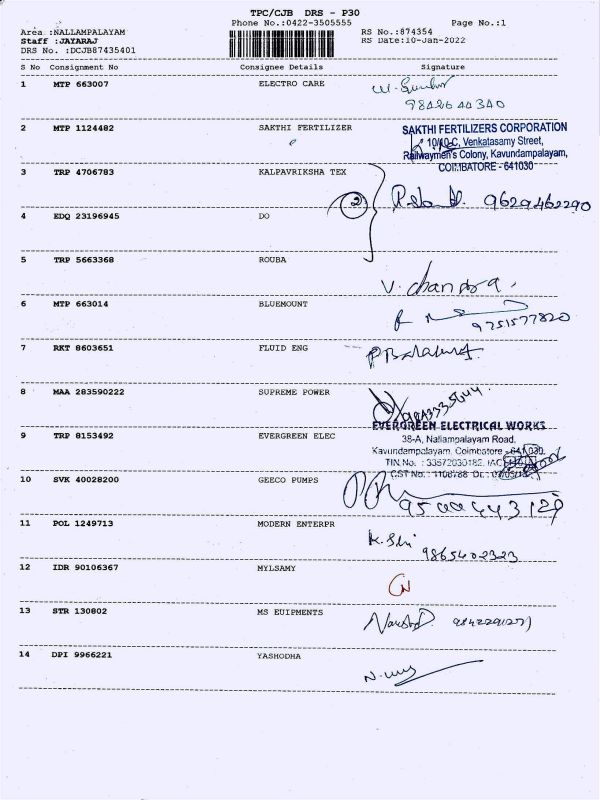 TPC/CJB DRS - P30
Phone No.:0422-3505555
Page No.:1
Area :NALLAMPALAYAM
Staff :JAYARAJ
DRS No. :DCJB87435401
RS No.:874354
RS Date:10-Jan-2022
S No Consignment No Consignee Details Signature
1 MTP 663007 ELECTRO CARE
9842644340
2 MTP 1124482 SAKTHI FERTILIZER
SAKTHI FERTILIZERS CORPORATION
10/40-C, Venkatasamy Street,
Railwaymen's Colony, Kavundampalayam,
COIMBATORE - 641030
3 TRP 4706783 KALPAVRIKSHA TEX
2
9629462290
4 EDQ 23196945 DO
5 TRP 5663368 ROUBA
V. chandra.
6 MTP 663014 BLUEMOUNT
9751577820
7 RKT 8603651 FLUID ENG
8 MAA 283590222 SUPREME POWER
9 TRP 8153492 EVERGREEN ELEC
EVERGREEN ELECTRICAL WORKS
38-A, Nallampalayam Road,
Kavundampalayam, Coimbatore - 641 030.
TIN No. : 33572030182,
CST No. :
10 SVK 40028200 GEECO PUMPS
11 POL 1249713 MODERN ENTERPR
9865402323
12 IDR 90106367 MYLSAMY
13 STR 130802 MS EUIPMENTS
14 DPI 9966221 YASHODHA